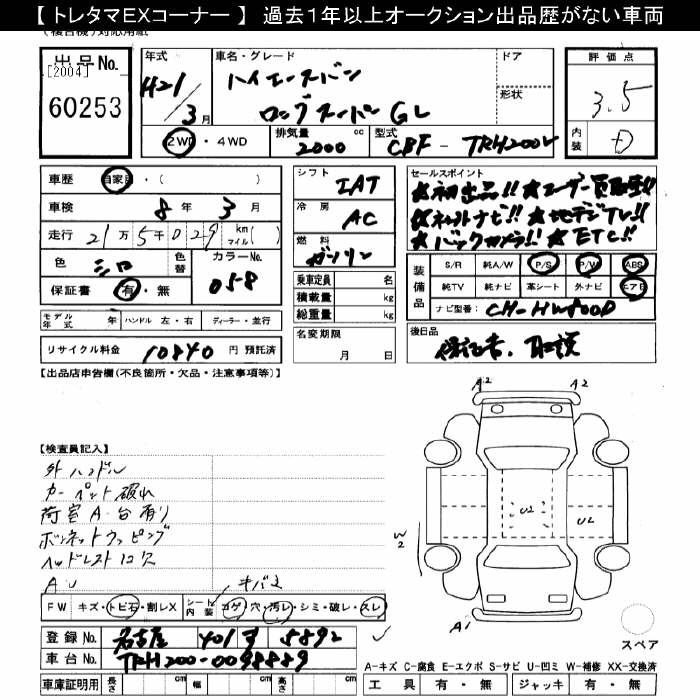 【トレタマEXコーナー】 過去1年以上オークション出品歴がない車両
(複合機)対応用紙
出品No. [2004] 60253
年式 H21/3月
車名・グレード ハイエースバン ロングスーパーGL
ドア
形状
2WD・4WD
排気量 2000 cc
型式 CBF-TRH200V
評価点 3.5
内装 D
車歴 自家用・( )
車検 8年3月
走行 21万5千029 km マイル( )
色 シロ
色替
カラーNo. 058
保証書 有・無
モデル年式 年 ハンドル 左・右 ディーラー・並行
リサイクル料金 10840 円 預託済
シフト IAT
冷房 AC
燃料 ガソリン
乗車定員 名
積載量 kg
総重量 kg
名変期限 月 日
セールスポイント
★初出品!! ★ユーザー買取車!!
★ネットナビ!! ★地デジTV!!
★バックカメラ!! ★ETC!!
装備品 S/R 純A/W P/S P/W ABS
純TV 純ナビ 革シート 外ナビ エアB
ナビ型番: CH-HW800D
後日品
保証書、取説
【出品店申告欄(不良箇所・欠品・注意事項等)】
【検査員記入】
外ハンドル
カーペット破れ
荷室A・台有り
ボンネットラッピング
ヘッドレスト1コ欠
AU
キバミ
FW キズ・トビ石・割レX シート内装 コゲ・穴・汚レ・シミ・破レ・スレ
登録No. 名古屋 401 す 5892
車台No. TRH200-0098889
車庫証明用 長さ cm 幅 cm 高さ cm
A2 A2
U2
U2
W2
A1
スペア
A-キズ C-腐食 E-エクボ S-サビ U-凹ミ W-補修 XX-交換済
工具 有・無 ジャッキ 有・無